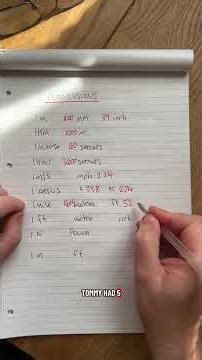 CONVERSIONS
1 M 1000 mm 39 inch
1KM 1000 m
1 minute 60 seconds
1 hour 3600 seconds
1 m/s mph 2.24
1 celsius F 33.8 K 274
1 mile meters ft 52
1 ft metre inch
1 N Pound
1 M ft
TOMMY HAD 5